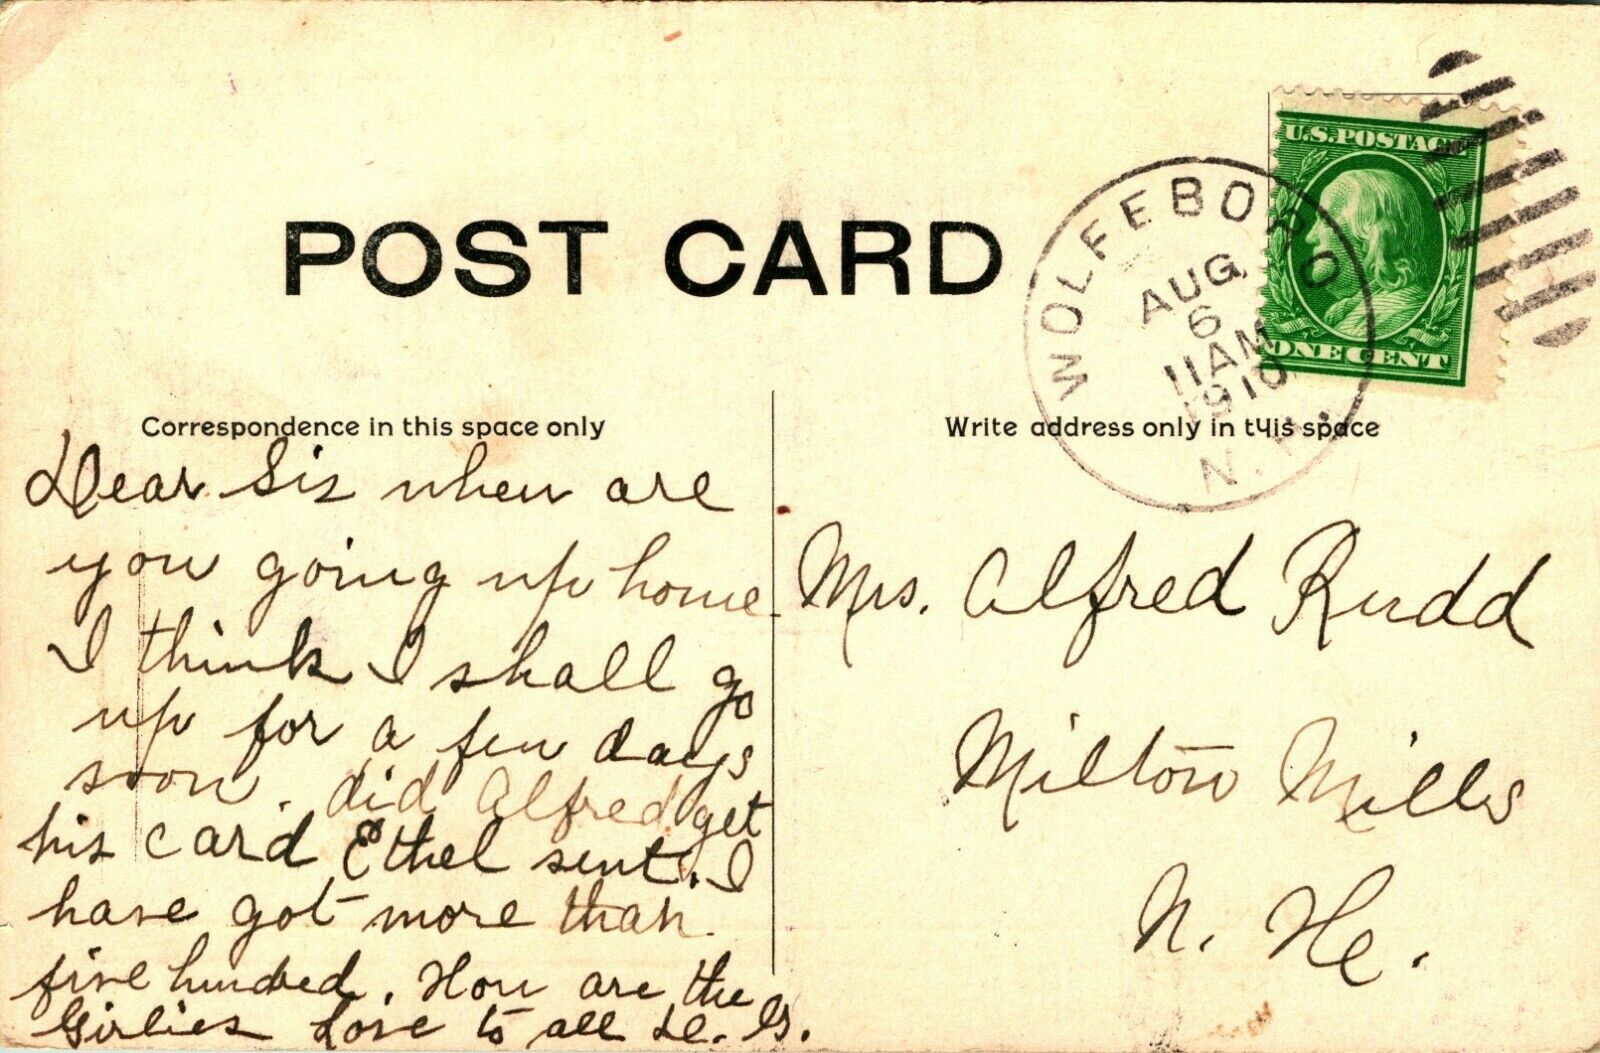 POST CARD
WOLFEBORO
AUG
6
11AM
1910
N.H.
U.S.POSTAGE
ONE CENT
Correspondence in this space only
Write address only in this space
Dear Sis when are
you going up home
I think I shall go
up for a few days
soon. did Alfred get
his card Ethel sent. I
have got more than
five hundred. How are the
Girlies Love to all
Mrs. Alfred Rudd
Milton Mills
N. H.